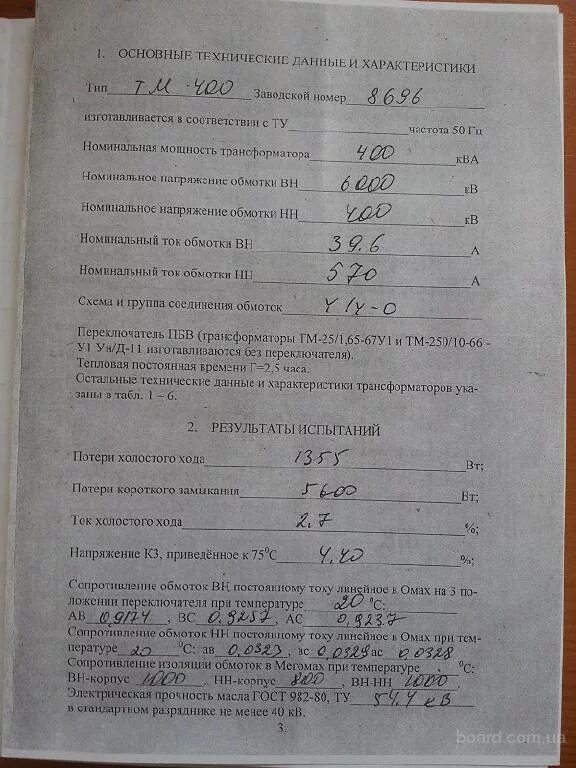 1. ОСНОВНЫЕ ТЕХНИЧЕСКИЕ ДАННЫЕ И ХАРАКТЕРИСТИКИ
Тип ТМ-400 Заводской номер 8696
изготавливается в соответствии с ТУ частота 50 Гц
Номинальная мощность трансформатора 400 кВА
Номинальное напряжение обмотки ВН 6000 кВ
Номинальное напряжение обмотки НН 400 кВ
Номинальный ток обмотки ВН 39.6 А
Номинальный ток обмотки НН 570 А
Схема и группа соединения обмоток У/У-0
Переключатель ПБВ (трансформаторы ТМ-25/1,65-67У1 и ТМ-250/10-66 -
У1 Ун/Д-11 изготавливаются без переключателя).
Тепловая постоянная времени Г=2,5 часа.
Остальные технические данные и характеристики трансформаторов ука-
заны в табл. 1 – 6.
2. РЕЗУЛЬТАТЫ ИСПЫТАНИЙ
Потери холостого хода 1355 Вт;
Потери короткого замыкания 5600 Вт;
Ток холостого хода 2.7 %;
Напряжение КЗ, приведённое к 75⁰С 4.40 %;
Сопротивление обмоток ВН постоянному току линейное в Омах на 3 по-
ложении переключателя при температуре 20 ⁰С:
АВ 0,9174, ВС 0.9257, АС 0,9237
Сопротивление обмоток НН постоянному току линейное в Омах при тем-
пературе 20 ⁰С: ав 0,0323, вс 0,0329 ас 0,0328
Сопротивление изоляции обмоток в Мегомах при температуре ⁰С:
ВН-корпус 1000, НН-корпус 800, ВН-НН 1000.
Электрическая прочность масла ГОСТ 982-80, ТУ 54.4 кВ
в стандартном разряднике не менее 40 кВ.
3.
board.com.ua